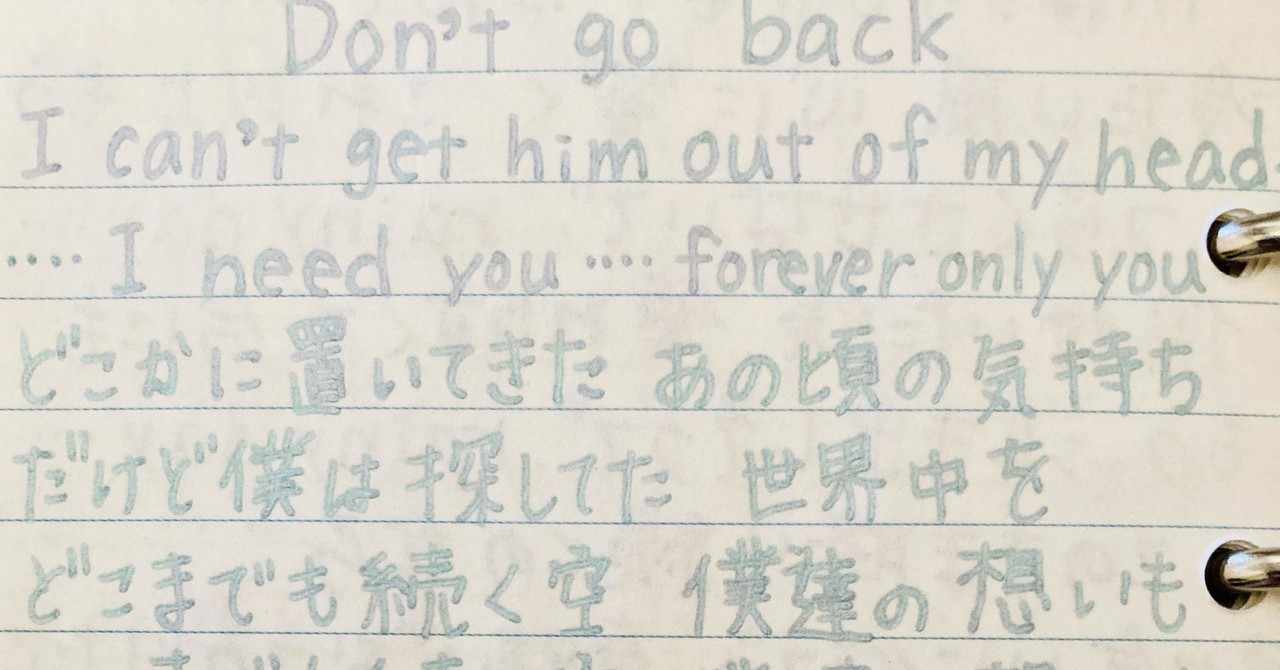 Don't go back
I can't get him out of my head.
.... I need you .... forever only you
どこかに置いてきた あの頃の気持ち
だけど僕は探してた 世界中を
どこまでも続く空 僕達の想いも